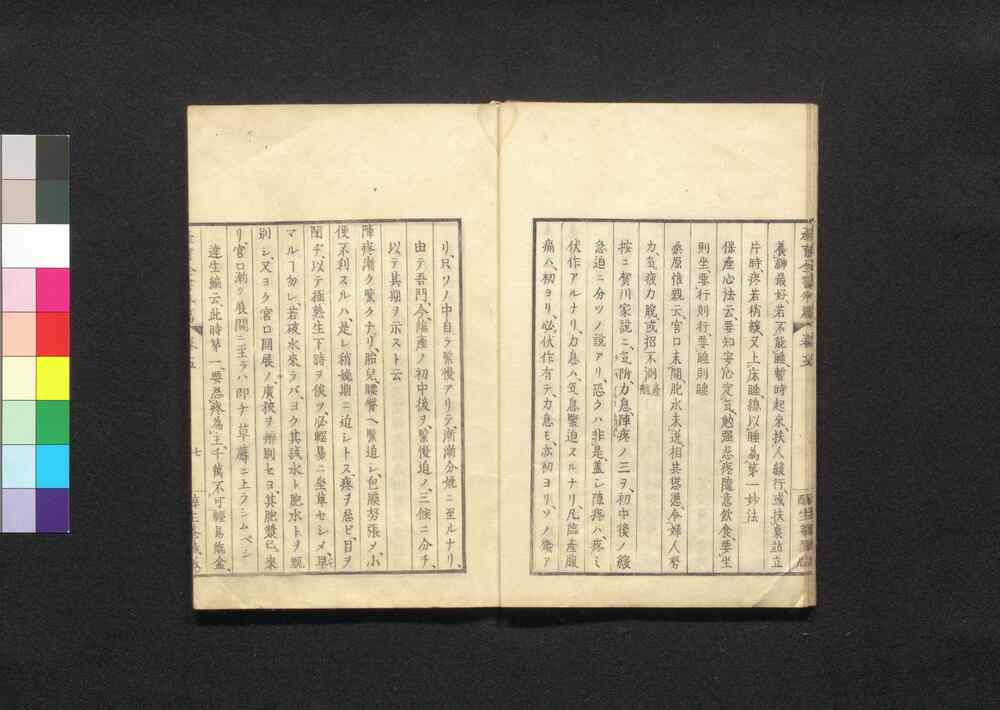 養神最好若不能睡暫時起來扶人緩行或扶集站立
片時疼若稍緩又上床睡總以睡為第一妙法
保產心法云要知寧心定氣勉强忍疼隨意飲食要坐
則坐要行則行要睡則睡
桑原惟親云宮口未開胞水未迸相共慫憑令婦人努
力氣疲力脫或招不測產難
按ニ賀川家說ニ氣阞力息陣疼ノ三ヲ初中後ノ緩
急迫ニ分ツノ說アリ恐クハ非是蓋シ陣疼ハ疼ミ
伏作アルナリ力息ハ氣息緊迫スルナリ凡臨產腹
痛ハ初ヨリ必伏作有テ力息モ亦初ヨリソノ機ア
リ只ソノ中自ラ緊慢アリテ漸漸分娩ニ至ルナリ
由テ吾門今臨產ノ初中後ヲ緊慢迫ノ三候ニ分チ
以テ其期ヲ示スト云
陣疼漸ク緊クナリ胎兒腰臀ヘ緊迫シ包膜努張メ小
便不利スルハ是レ稍娩期ニ迫シトス疼ヲ忍ビ目ヲ
閉ヂ以テ極熟生下時ヲ俟ヲ必輕易ニ坐草セシメ早
マルヿ勿レ若破水來ラバヨク其誤水ト胞水トヲ甄
別シ又ヨク宮口開展ノ廣狹ヲ辨別セヨ其胞漿已來
リ宮口漸ク展開ニ至ラハ即チ草蓐ニ上ラシムベシ
達生編云此時第一要忍疼為主千萬不可輕易臨盆
七